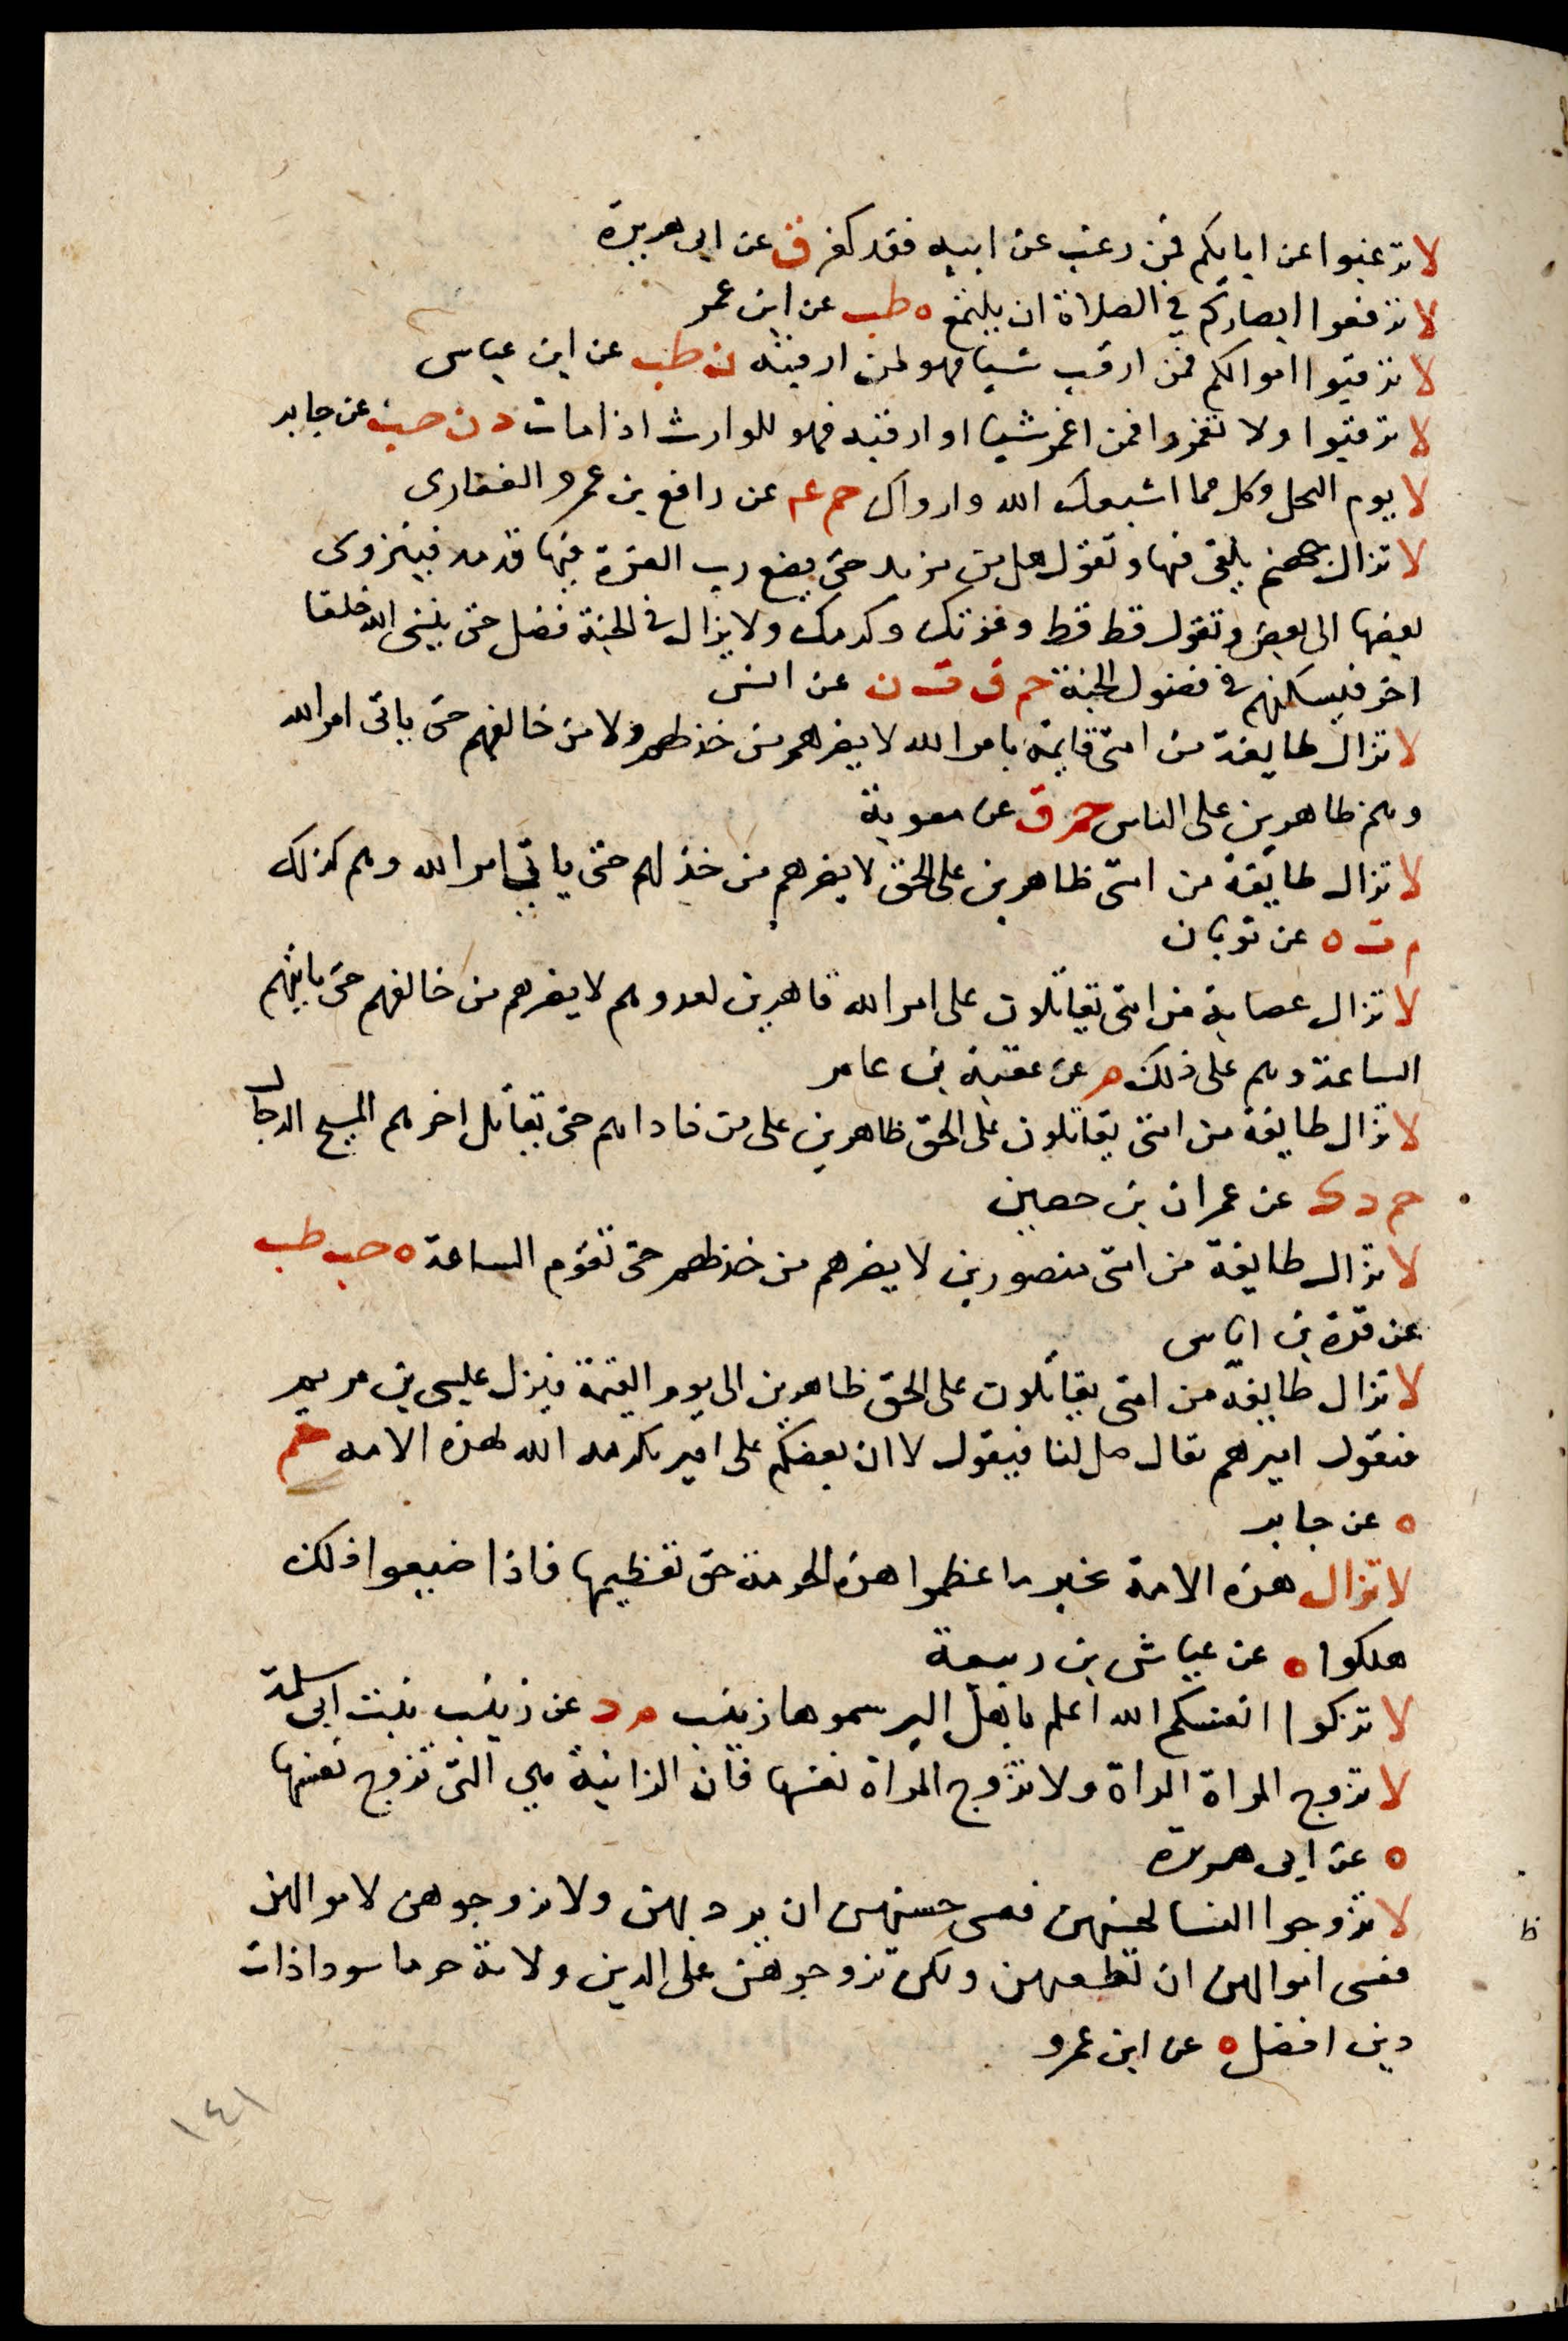 لا ترغبوا عن ابايكم فمن رغب عن ابيه فقد كفر ق عن ابى هريرة
لا ترفعوا ابصاركم في الصلاة ان يلتمع ه طب عن ابن عمر
لا ترقبوا اموالكم فمن ارقب شيا فهو لمن ارقبه ن طب عن ابن عباس
لا ترقبوا ولا تعمروا فمن اعمر شيا او ارقبه فهو للوارث اذا مات د ن حب عن جابر
لا يوم النحل وكل مما اشبعك الله وارواك حم عه عن رافع بن عمرو الغفارى
لا تزال جهنم يلقى فيها وتقول هل من مزيد حتى يضع رب العزة فيها قدمه فينزوى
بعضها الى بعض وتقول قط قط وعزتك وكرمك ولا يزال في الجنة فضل حتى ينشى الله خلقا
اخر فيسكنهم في فضول الجنة حم ق ت ن عن انس
لا تزال طايفة من امتى قايمة بامر الله لا يضرهم من خذلهم ولا من خالفهم حتى ياتى امر الله
وهم ظاهرين على الناس حم ق عن معوية
لا تزال طايفة من امتى ظاهرين على الحق لا يضرهم من خذلهم حتى ياتي امر الله وهم كذلك
م ت ه عن ثوبان
لا تزال عصابة من امتى يقاتلون على امر الله قاهرين لعدوهم لا يضرهم من خالفهم حتى ياتيهم
الساعة وهم على ذلك م عن عقبة بن عامر
لا تزال طايفة من امتى يقاتلون على الحق ظاهرين على من ناداهم حتى يقاتل اخرهم المسيح الدجال
حم د ك عن عمران بن حصين
لا تزال طايفة من امتى منصورين لا يضرهم من خذلهم حتى تقوم الساعة ه حب طب
عن قرة بن اياس
لا تزال طايفة من امتى يقاتلون على الحق ظاهرين الى يوم القيمة فينزل عيسى بن مريم
فيقول اميرهم تعال صل لنا فيقول لا ان بعضكم على امير تكرمه الله لهذه الامه حم
ه عن جابر
لا تزال هذه الامة بخير ما عظموا هذه الحرمة حق تعظيمها فاذا ضيعوا ذلك
هلكوا ه عن عياش بن ربيعة
لا تزكوا انفسكم الله اعلم باهل البر سموها زينب م د عن زينب بنت ابى سلمة
لا تزوج المراة المراة ولا تزوج المراة نفسها فان الزانية هي التى تزوج نفسها
ه عن ابى هريرة
لا تزوجوا النسا لحسنهن فعسى حسنهن ان يرديهن ولا تزوجوهن لاموالهن
فعسى اموالهن ان تطغيهن ولكن تزوجوهن على الدين ولامة خرما سودا ذات
دين افضل ه عن ابن عمرو
ط
١٤١